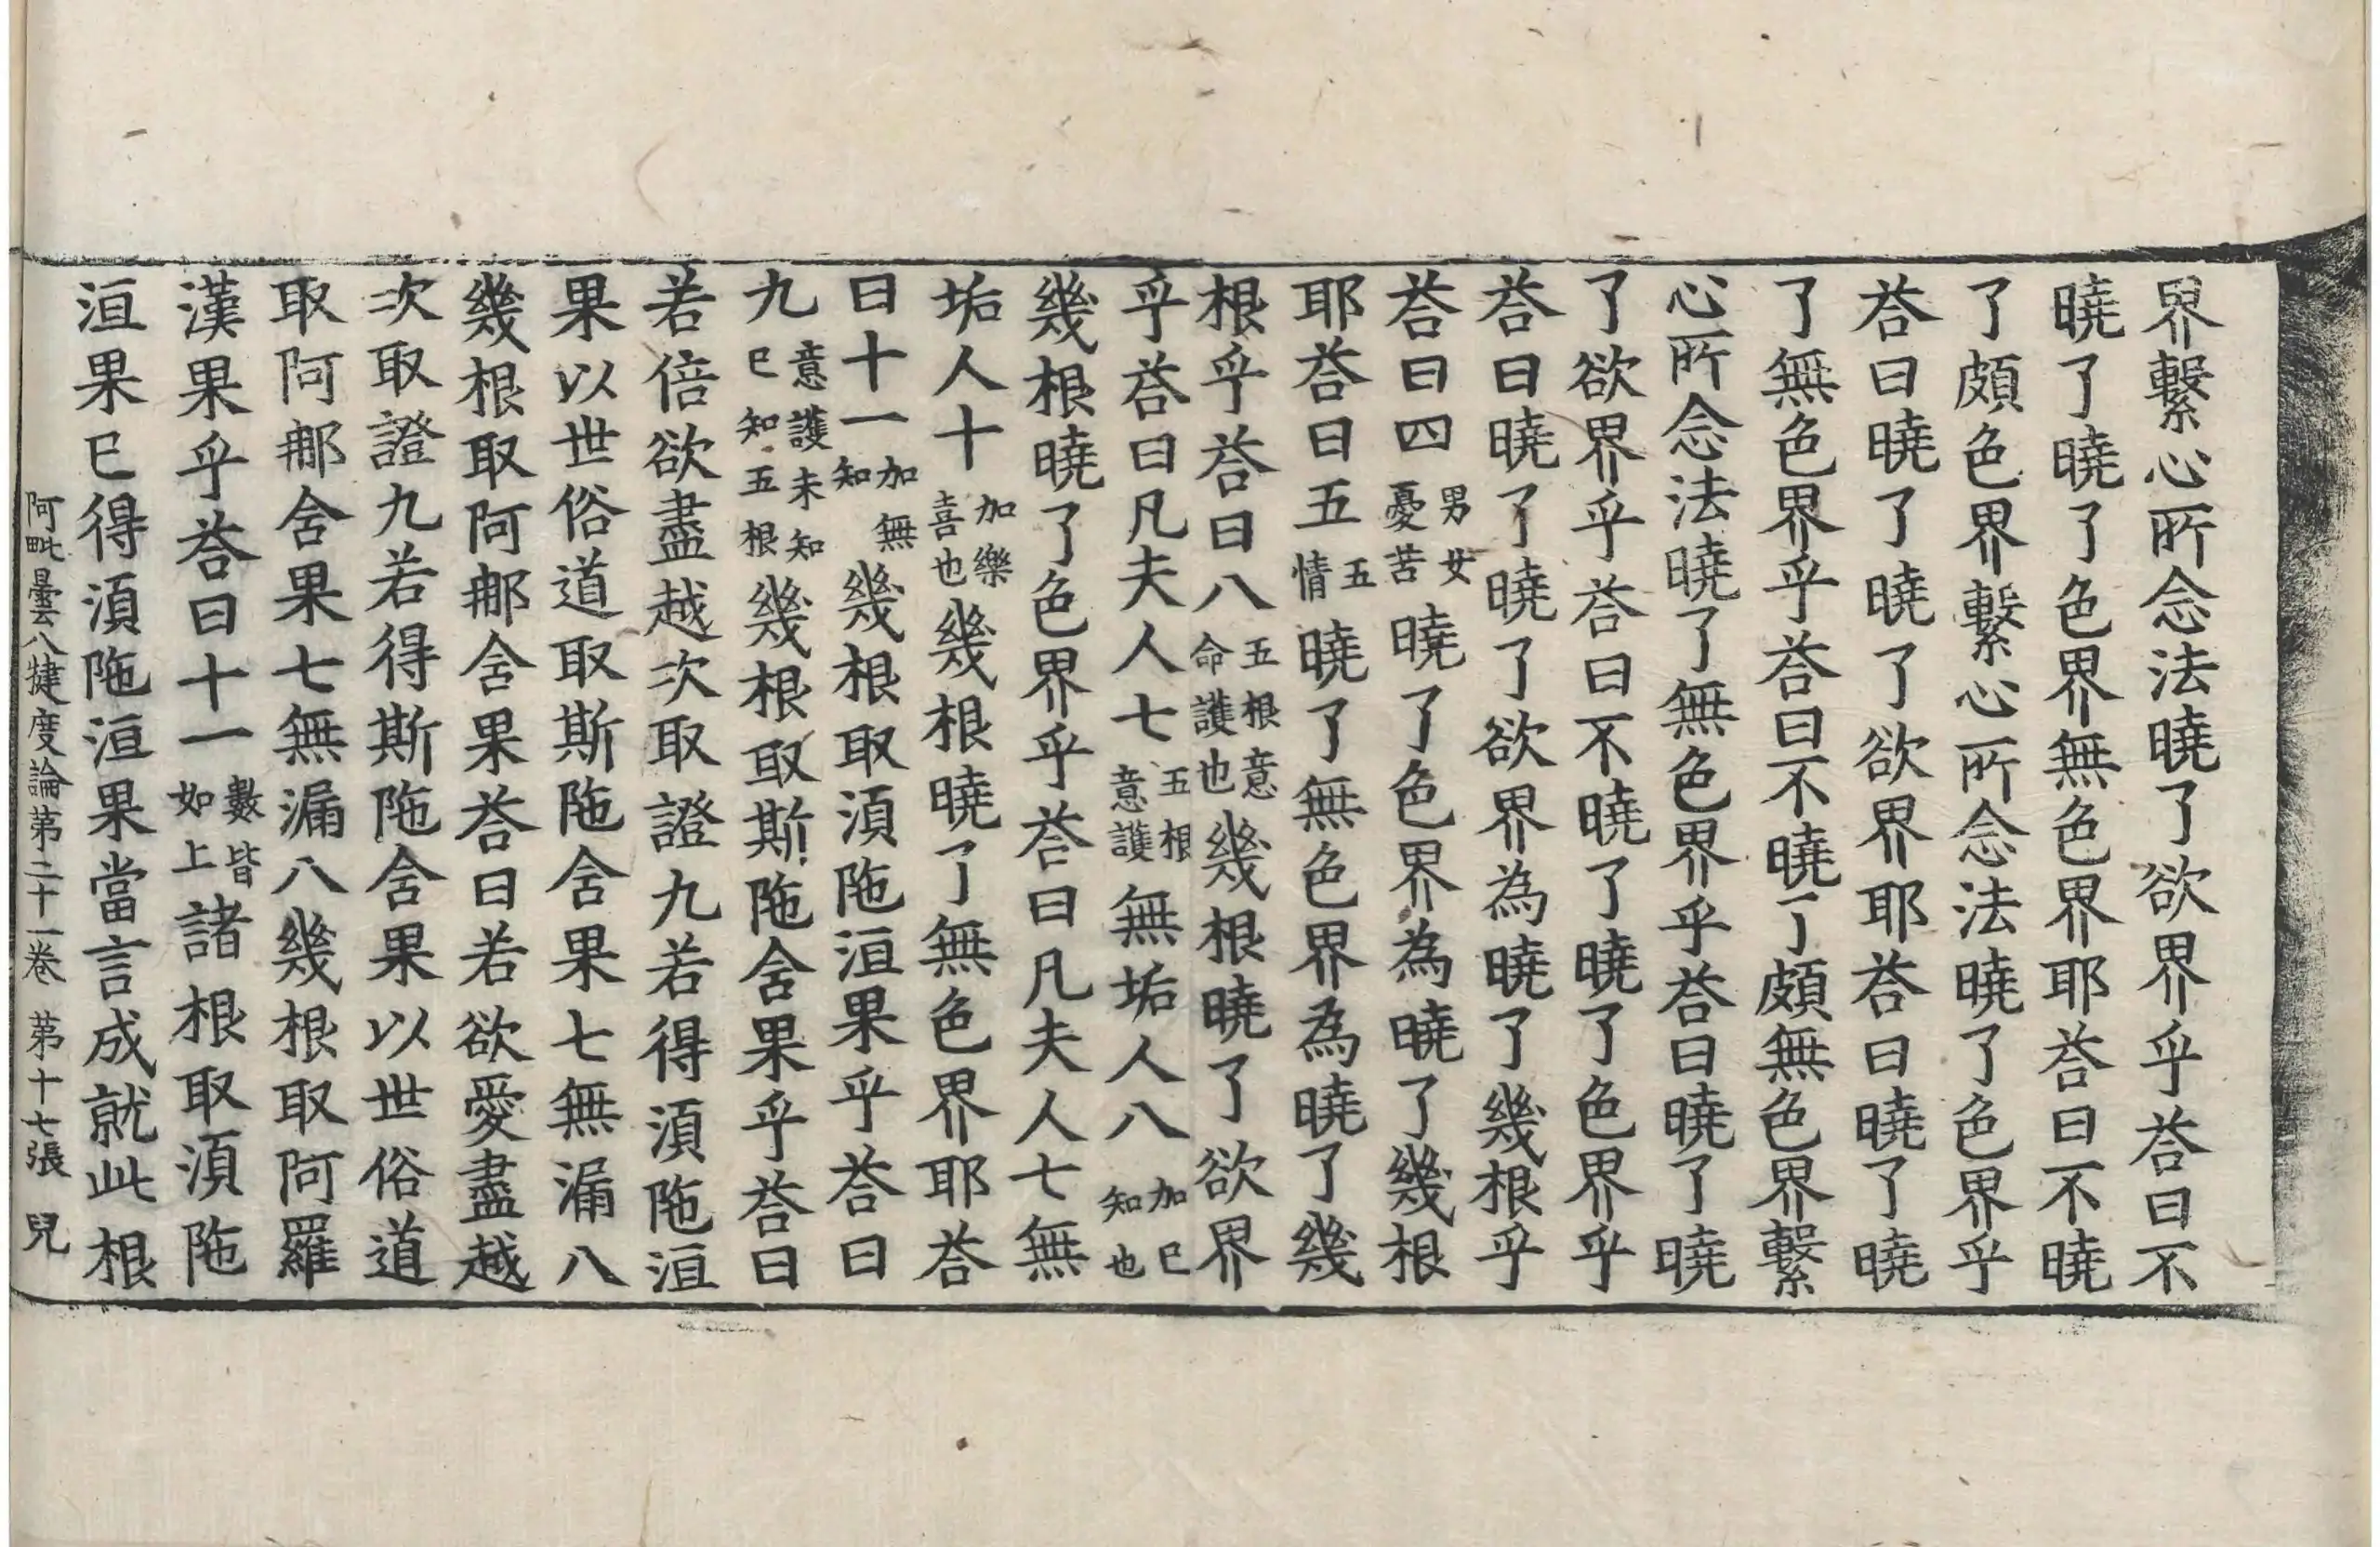 界繫心所念法曉了欲界乎荅曰不
曉了曉了色界無色界耶荅曰不曉
了頗色界繫心所念法曉了色界乎
荅曰曉了曉了欲界耶荅曰曉了曉
了無色界乎荅曰不曉了頗無色界繫
心所念法曉了無色界乎荅曰曉了曉
了欲界乎荅曰不曉了曉了色界乎
荅曰曉了曉了欲界為曉了幾根乎
荅曰四男女憂苦曉了色界為曉了幾根
耶荅曰五五情曉了無色界為曉了幾
根乎荅曰八五根意命護也幾根曉了欲界
乎荅曰凡夫人七五根意護無垢人八加已知也
幾根曉了色界乎荅曰凡夫人七無
垢人十加樂喜也幾根曉了無色界耶荅
曰十一加無知幾根取湏陁洹果乎荅曰
九意護未知已知五根幾根取斯陁舍果乎荅曰
若倍欲盡越次取證九若得湏陁洹
果以世俗道取斯陁舍果七無漏八
幾根取阿那舍果荅曰若欲愛盡越
次取證九若得斯陁舍果以世俗道
取阿那舍果七無漏八幾根取阿羅
漢果乎荅曰十一數皆如上諸根取湏陁
洹果已得湏陁洹果當言成就此根
阿毗曇八揵度論第二十一卷 第十七張 兒